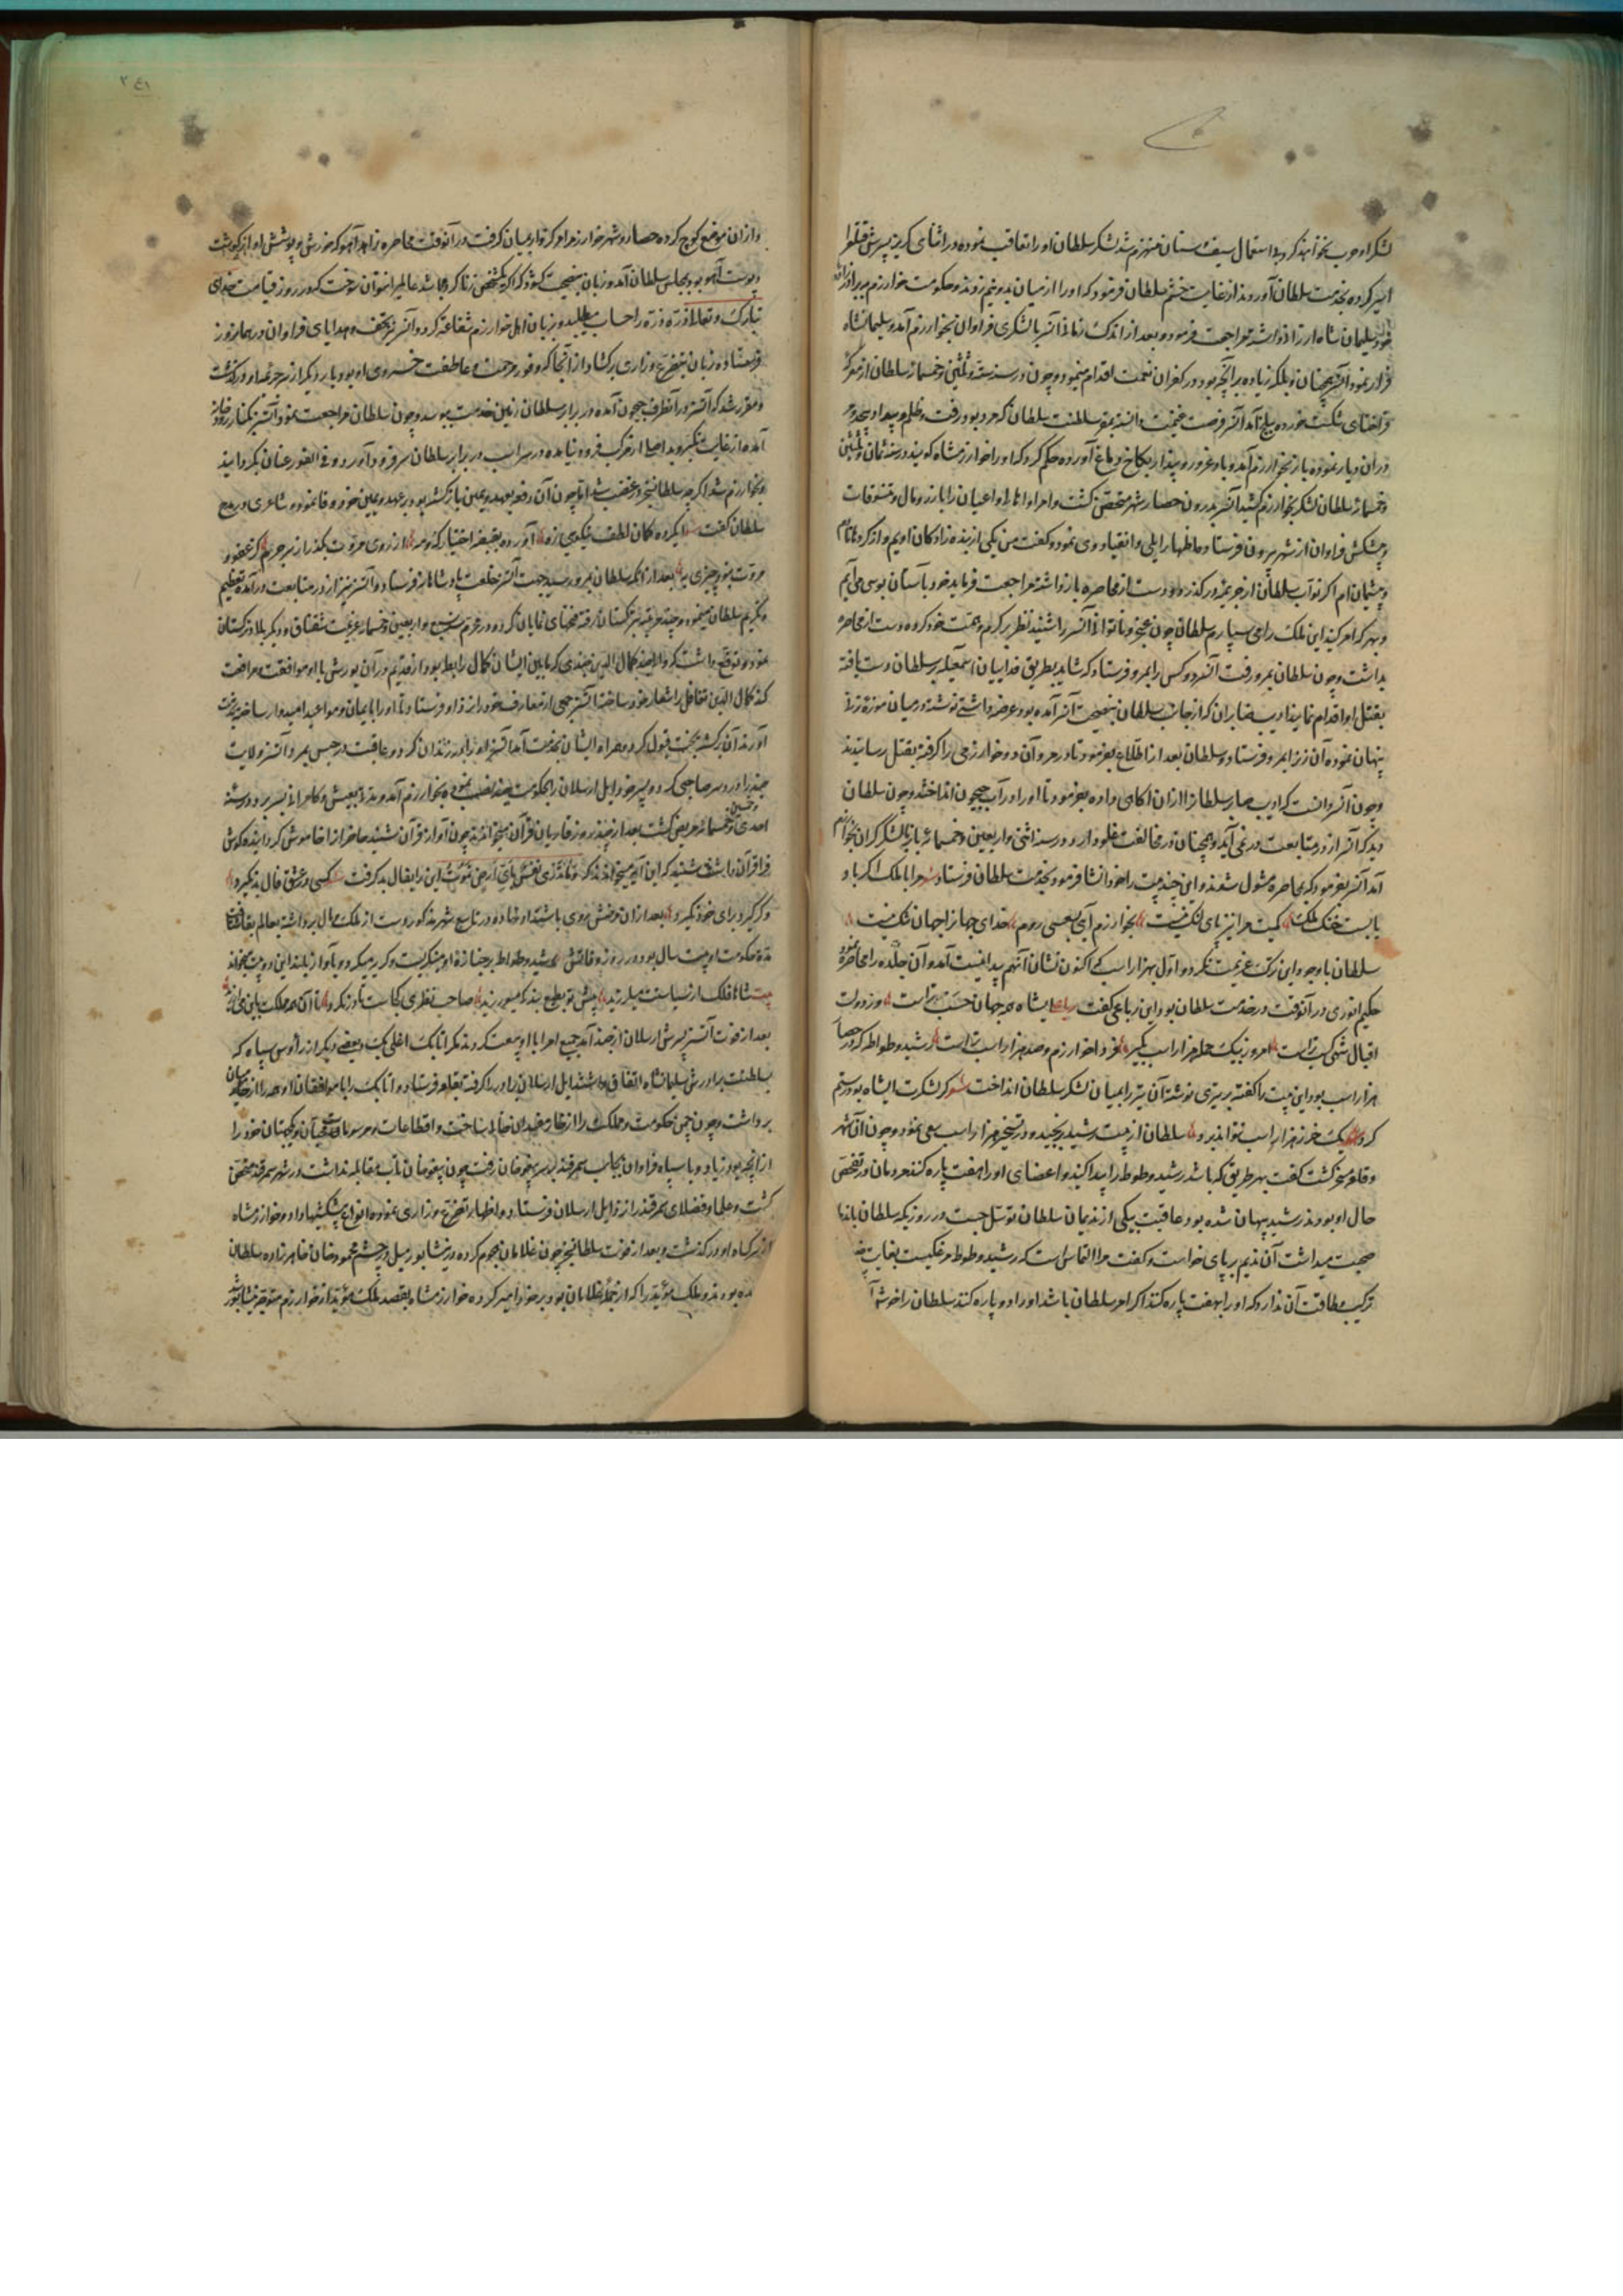 لشکر او حرب نخواهند کرد و بی استعمال سیف و سنان منهزم شد لشکر سلطان او را تعاقب نموده در اثنای گریز پسرش قتلغ را
اسیر کرده بخدمت سلطان آوردند از غایت خشم سلطان فرمود که او را از میان بدو نیم زدند و حکومت خوارزم ببرادرزاده
خود سلیمان شاه ارزانی داشته مراجعت فرمود و بعد از اندک زمانی آتسز با لشکری فراوان بخوارزم آمد و سلیمانشاه
فرار نمود آتسز همچنان بلکه زیاده بر آنچه بود در کفران نعمت اقدام مینمود و چون در سنه ستة و ثلثین و خمسمائه سلطان از معرکه
قراختای شکست خورده ببلخ آمد آتسز فرصت غنیمت دانسته بمرو سلطنت سلطان که مرو بود رفت و ظلم و بیداد بیحد
در آن دیار نموده باز بخوارزم آمد و باد غرور و پندار بکاخ دماغ آورده حکم کرد که او را خوارزمشاه گویند در سنه ثمان و ثلثین
و خمسمائه سلطان لشکر بخوارزم کشید آتسز بدرون حصار شهر متحصن گشت و امرا و اعیان را بازر و مال و تنسوقات
و پیشکش فراوان از شهر بیرون فرستاد و اظهار ایلی و انقیاد وی نمود و گفت من یکی از بنده زادگان اویم و از کرده نادم
و پشیمان ام اگر نواب سلطان از جریمه در گذرد و دست از محاصره باز داشته مراجعت فرماید خود بآستان بوسی می آیم
و بهر که امر کنید این ملک را می سپارم سلطان چون عجز و ناتوانی آتسز را شنید نظر بر کرم و همت خود کرده دست از محاصره
بداشت و چون سلطان بمرو رفت آتسز دو کس را بمرو فرستاد که شاید بطریق فداییان اسمعیلیه بر سلطان دست یافته
بقتل او اقدام نمایند ادیب صابر آن که از جانب سلطان بنصیحت آتسز آمده بود عرضه داشتی نوشته در میان موزه زنی
پنهان نموده آن زن را بمرو فرستاد و سلطان بعد از اطلاع بفرمود تا در مرو آن دو خوارزمی را گرفته بقتل رسانیدند
و چون آتسز دانست که ادیب صابر سلطان را از آن آگاهی داده بفرمود تا او را در آب جیحون انداختند و چون سلطان
دید که آتسز از در متابعت در نمی آید و همچنان در مخالفت غلو دارد در سنه اثنی و اربعین و خمسمائه باز با لشکر گران بخوارزم
آمد آتسز بفرمود که بمحاصره مشغول شدند و این چند بیت را خود انشا فرمود و بخدمت سلطان فرستاد شعر مرا با ملک اگر باد
پا بست خنگ ملک کمیت مرا نیز پای لنگ نیست بخوارزم آیی بسقسین روم خدای جهان را جهان تنگ نیست
سلطان با وجود این ترک عزیمت نکرد و اول بهزار اسب که اکنون نشان آن هم پیدا نیست آمد و آن جلده را محاصره نمود
حکیم انوری در آنوقت در خدمت سلطان بود این رباعی گفت رباعی ای شاه همه جهان حسب تراست وز دولت
اقبال شهی کسب تراست امروز بیک حمله هزار اسب بگیر فردا خوارزم و صد هزار اسب تراست رشید وطواط که در حصار
هزار اسب بود این بیت را گفته بر تیری نوشته آن تیر را بمیان لشکر سلطان انداخت شعر گر لشکرت ای شاه بود رستم
گرد یک خر ز هزار اسب نتواند برد سلطان از بیت رشید برنجید و در تسخیر هزار اسب سعی نمود و چون آن شهر
و قلعه مسخر گشت گفت بهر طریق که باشد رشید وطواط را پیدا کنید و اعضای او را بهفت پاره کنند مردمان در تفحص
حال او بودند رشید پنهان شده بود و عاقبت بیکی از ندیمان سلطان توسل جست در روزیکه سلطان با ندما
صحبت میداشت آن ندیم بر پای خواست و گفت مرا التماس است که رشید وطواط مرغکیست بغایت
ترکیب طاقت آن ندارد که او را بهفت پاره کنند اگر امر سلطان باشد او را دو پاره کنند سلطان را خوش آ
و از ان موضع کوچ کرده حصار و شهر خوارزم را دایره وار میان گرفت در آنوقت محاصره زاهد آهو که خورش و پوشش او از گوشت
و پوست آهو بود بمجلس سلطان آمد و زبان بنصیحت گشود که اگر یک شخص زنا کرده باشد عالمیرا نتوان سوخت که در روز قیامت خدای
تبارک و تعالی از ذره ذره را حساب میطلبد و زبان اهل خوارزم شفاعت کرد و آتسز نیز تحف و هدایای فراوان در همان روز
فرستاده زبان بتضرع و زاری برگشاد از آنجا که وفور مرحمت و عاطفت خسروی او بود بار دیگر از سر جرایم او درگذشت
و مقرر شد که آتسز در آنطرف جیحون آمده در برابر سلطان زمین خدمت ببوسد و چون سلطان مراجعت نمود آتسز بکنار رودخانه
آمده از غایت تکبر و بد اصلی از مرکب فرود نیامده در سر اسب در برابر سلطان سر فرود آورد و فی الفور عنان بگردانید
و بخوارزم شد اگرچه سلطان سنجر در غضب شد اما چون آن دفعه بعهد و یمین باز گشته بود بر عهد و یمین خود وفا نمود و شاعری در مدح
سلطان گفت ای کرده کان لطف نیکوی زه آورده بقبضه اختیار که و مه از روی مروت بگذر از سر جرم کز عفو و
مروت نبود چیزی به بعد از آنکه سلطان بمرو رسید جهت آتسز خلعت پادشاهانه فرستاد و آتسز نیز از در متابعت درآمده تعظیم
و تکریم سلطان مینمود و چند مرتبه بترکستان رفته فتحهای نمایان کرد و در محرم سنه سبع و اربعین و خمسمائه عزیمت سقناق و دیگر بلاد ترکستان
نمود و توقع داشت که والی جند کمال الدین جندی که مابین ایشان کمال رابطه بود از قدیم در آن یورش با او موافقت و مرافقت
کند کمال الدین تغافل را شعار خود ساخت آتسز جمعی از معارف خود را نزد او فرستاد تا او را بایمان و مواعید امیدوار ساخته بنزدش
آورند آن برگشته بخت قبول کرد و همراه ایشان بخدمت آمد آتسز او را در زندان کرد و عاقبت در حبس بمرد آتسز ولایت
جند را در دست صاحبی کرد و پسر خود ایل ارسلان را بحکومت جند نصب نموده بخوارزم آمد و مدتی بعیش و کامرانی بسر برد و در سنه
احدی و خمسین و خمسمائه مریض گشت بعد از چند روز قاریان قرآن میخواندند چون آواز قرآن شنید حاضران را خاموش گردانیده گوش
فرا قرآن داشت شنید که این آیه میخواندند که و ما تدری نفس بای ارض تموت این را بفال بد گرفت کسی در عشق فال بد نگیرد
و گر گیرد برای خود نگیرد بعد از آن مرضش روی باشتداد نهاد و در تاسع شهر مذکور دست از ملک و مال برداشته بعالم بقا شتافت
مدت حکومت او بیست سال بود در روز وفاتش رشید وطواط بر جنازه او میگریست و گریه میکرد و بآواز بلند این دو بیت میخواند
بیت شاها فلک از سیاستت میلرزید پیش تو بطوع بندگی میورزید صاحب نظری کجاست تا درنگرد تا آن همه مملکت باین می ارزید
بعد از فوت آتسز پسرش ارسلان از جند آمد جمیع امرا با او بیعت کردند مگر اتابک اغلبک و بعضی دیگر از رؤس سپاه که
بسلطنت برادرش سلیمانشاه اتفاق داشتند ایل ارسلان برادر را گرفته بقلعه فرستاد و اتابک را با موافقان او همه را از میان
برداشت و چون چمن حکومت و مملکت را از خار مفسدان خالی ساخت و اقطاعات و مرسومات سپاهیان و کهتران خود را
از آنچه بود زیاد و با سپاه فراوان بجانب سمرقند بر سر پیغو خان رفت چون پیغو خان تاب مقابله نداشت در شهر سمرقند متحصن
گشت و علما و فضلای سمرقند را نزد ایل ارسلان فرستاد و اظهار تضرع و زاری نموده انواع پیشکشها داد و خوارزمشاه
از سر گناه او درگذشت و بعد از فوت سلطان سنجر چون غلامان هجوم کرده در نیشابور میل در چشم محمود خان خاهر زاده سلطان
ده بودند و ملک مؤید را که از جمله غلامان بود بر خود امیر کرده خوارزمشاه بقصد ملک مؤید از خوارزم متوجه نیشابور